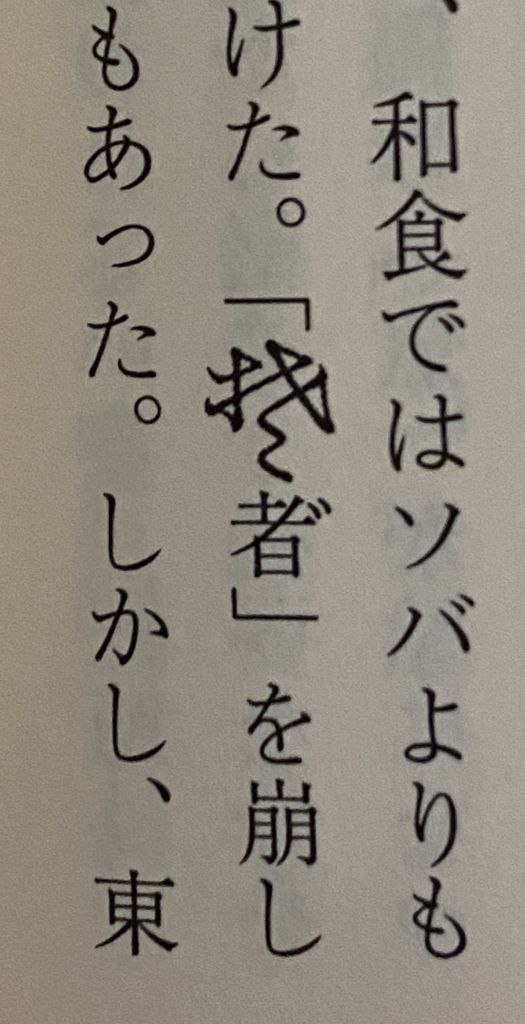 、和食ではソバよりも
けた。「楚者゛」を崩し
もあった。しかし、東